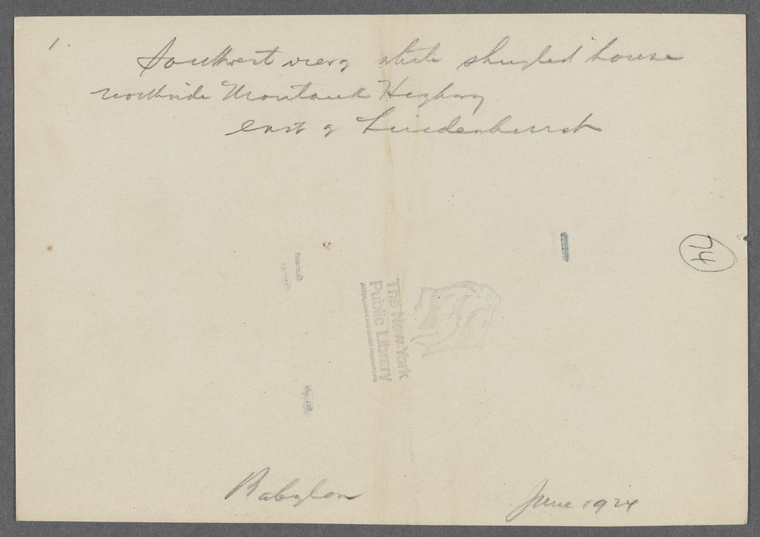 1.
Southwest view white shingled house
northside Montauk Highway
east of Lindenhurst
44
The New York
Public Library
Babylon
June 1924